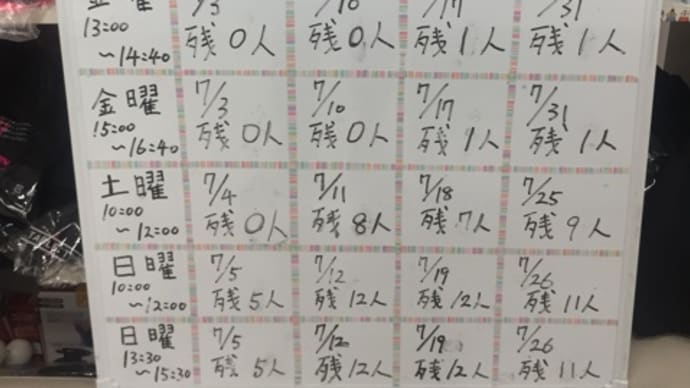 金曜 7/3 7/10 7/17 7/31
13:00 残0人 残0人 残1人 残1人
~14:40
金曜 7/3 7/10 7/17 7/31
15:00 残0人 残0人 残1人 残1人
~16:40
土曜 7/4 7/11 7/18 7/25
10:00 残0人 残8人 残7人 残9人
~12:00
日曜 7/5 7/12 7/19 7/26
10:00 残5人 残12人 残12人 残11人
~12:00
日曜 7/5 7/12 7/19 7/26
13:30 残5人 残12人 残12人 残11人
~15:30